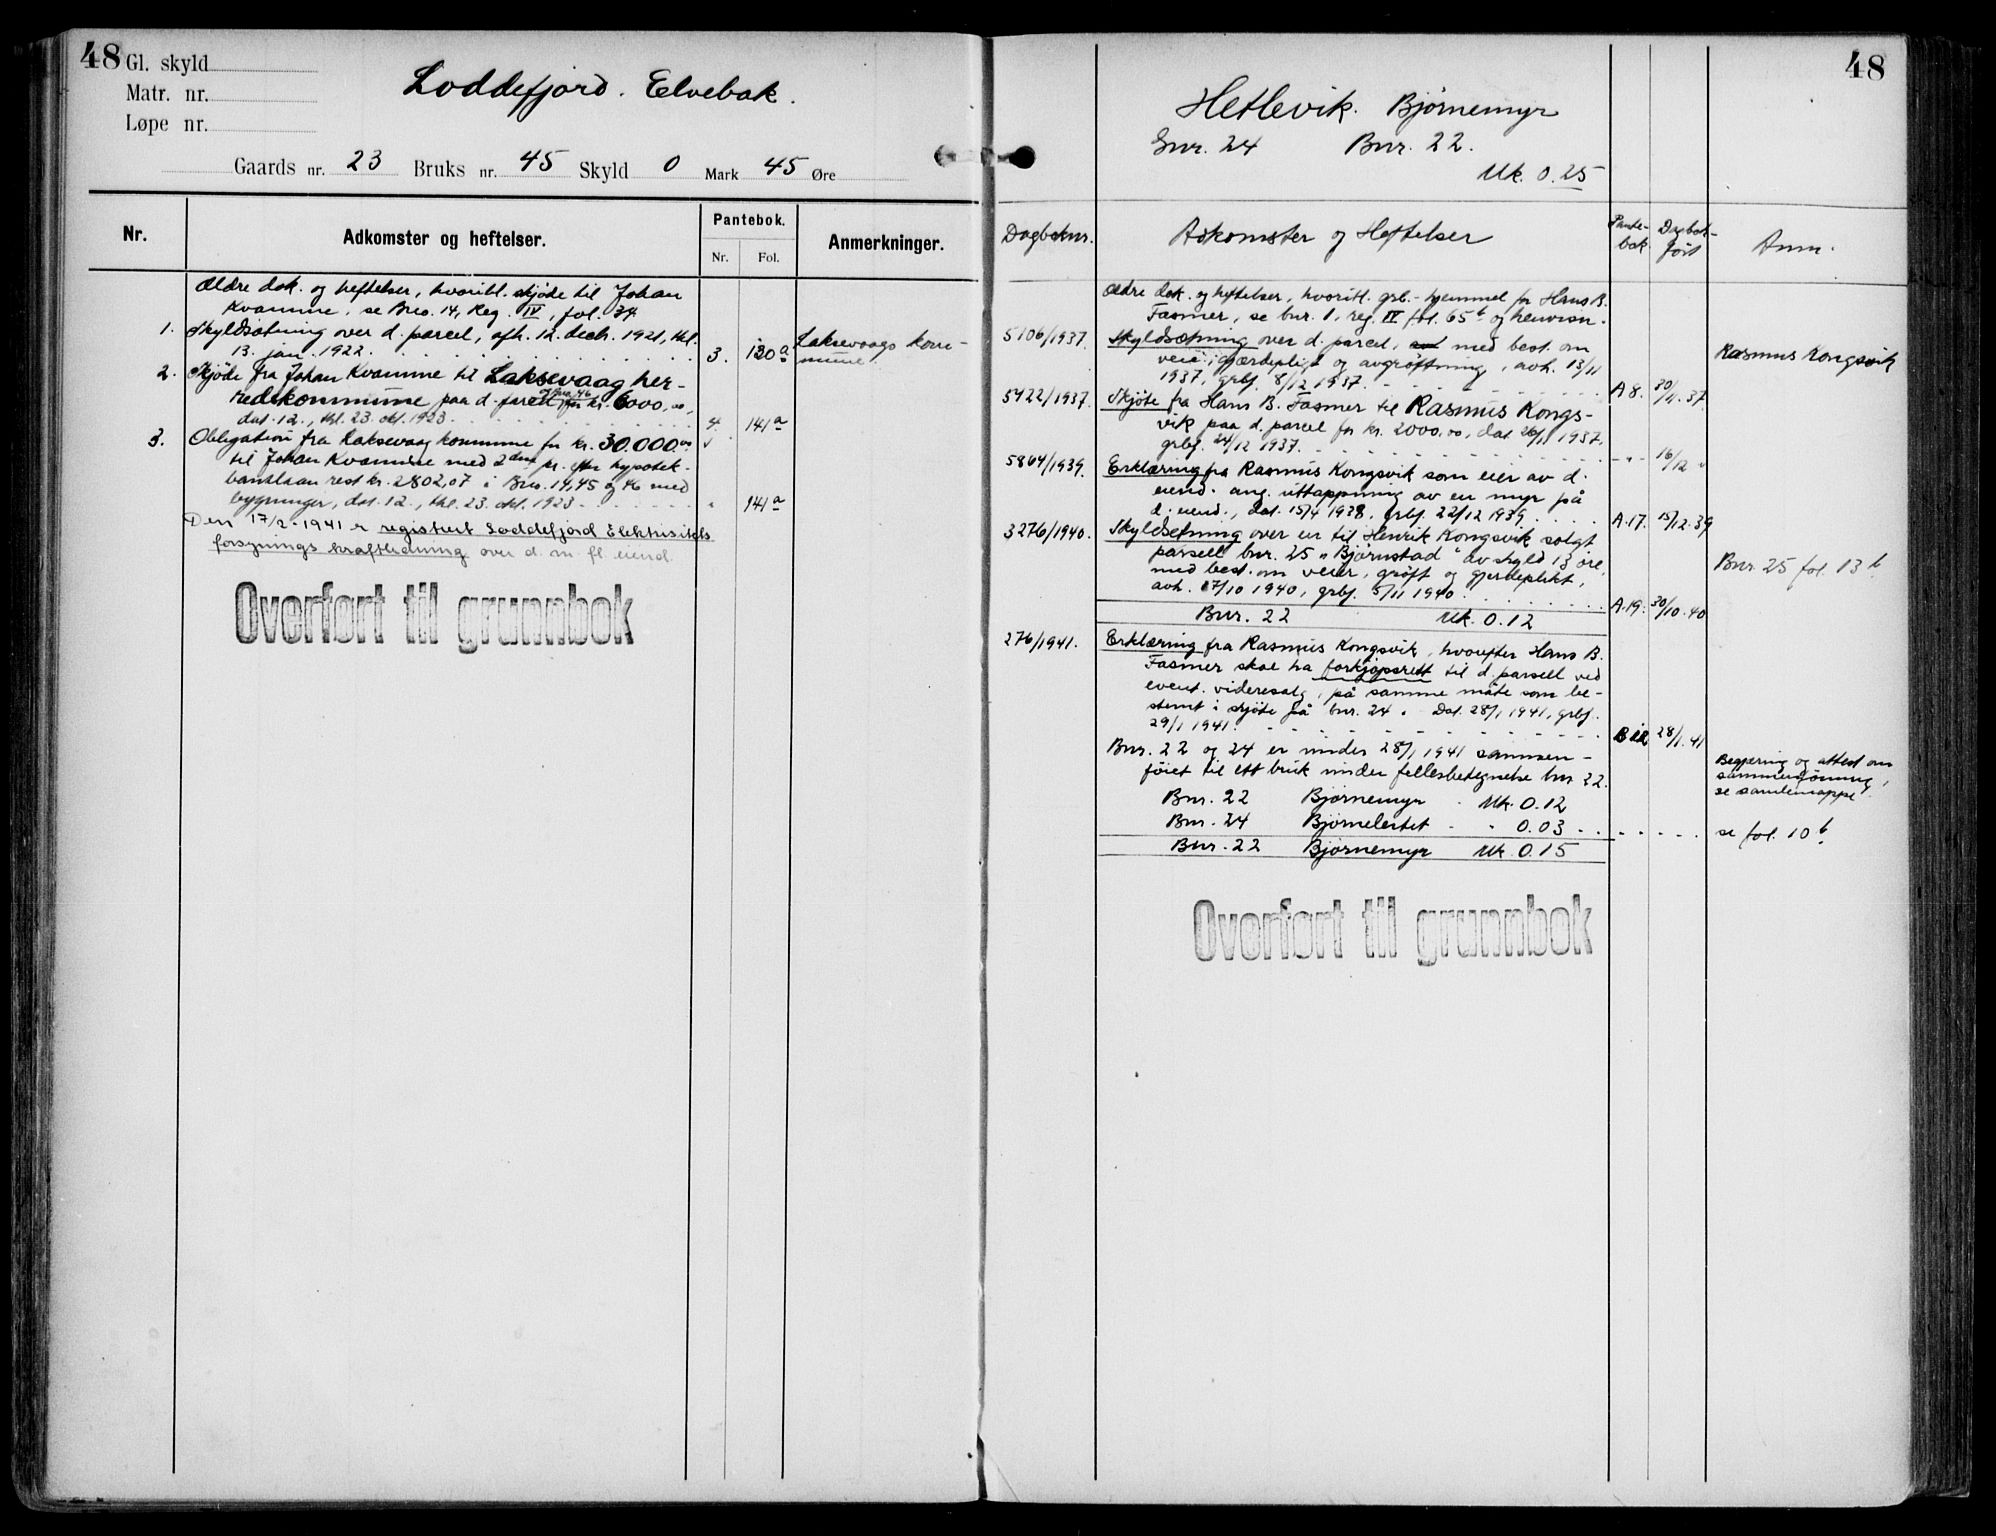 48
Gl. skyld
Matr. nr.
Løpe nr.
Loddefjord. Elvebak.
Gaards nr. 23 Bruks nr. 45 Skyld 0 Mark 45 Øre
Nr. Adkomster og heftelser. Pantebok. Anmerkninger.
Nr. Fol.
Ældre dok. og heftelser, hvoribl. skjøde til Johan
Kvamme, se Bno. 14, Reg. IV, fol. 34
1. Skyldsætning over d. parcel, afh. 12. decb. 1921, thl.
13. jan. 1922. 3. 130a Laksevaags kom-
mune.
2. Skjøde fra Johan Kvamme til Laksevaag her-
redskommune paa d. parcel og bno. 46 for kr. 6000,00,
dat. 12., thl. 23. okt. 1923. 4. 141a
3. Obligation fra Laksevaag kommune for kr. 30.000,00
til Johan Kvamme med 2den pr. efter hypotek-
banklaan rest kr. 2802,07 i Bno. 14, 45 og 46 med
bygninger, dat. 12., thl. 23. okt. 1923 " 141a
Den 17/2-1941 er registrert Loddefjord Elektrisitets
forsynings kraftledning over d. m. fl. eiend.
Overført til grunnbok
48
Hetlevik. Bjørnemyr
Gnr. 24 Bnr. 22.
Mk. 0.25
Dagboknr. Adkomster og Heftelser Pante-
bok Dagbok-
ført Anm.
Ældre dok. og heftelser, hvoribl. grb.-hjemmel for Hans B.
Fasmer, se bnr. 1, reg. IV fol. 65b og henvisn.
5106/1937. Skyldsætning over d. parcel, med best. om
veie, gjærdepligt og avgrøftning, avh. 13/11
1937, grbf. 8/12 1937. A 8. 30/11.37. Rasmus Kongsvik
5422/1937. Skjøte fra Hans B. Fasmer til Rasmus Kongs-
vik paa d. parcel for kr. 2000.00, dat. 26/11 1937,
grbf. 24/12 1937. - " - 16/12 "
5864/1939. Erklæring fra Rasmus Kongsvik som eier av d.
eiend. ang. uttappning av en myr på
d. eiend., dat. 15/4 1938, grbf. 22/12 1939. A.17. 15/12.39
3276/1940. Skyldsetning over en til Henrik Kongsvik solgt
parsell bnr. 25 "Bjørnstad" av skyld 13 øre,
med best. om veier, grøft og gjerdeplikt,
avh. 17/10 1940, grbf. 5/11 1940. A.19. 30/10.40 Bnr 25 fol. 13b.
Bnr. 22 Mk. 0.12
276/1941. Erklæring fra Rasmus Kongsvik, hvorefter Hans B.
Fasmer skal ha forkjøpsrett til d. parsell ved
event. videresalg, på samme måte som be-
stemt i skjøte på bnr. 24. Dat. 28/1 1941, grbf.
29/1 1941. 28/1.41
Bnr. 22 og 24 er under 28/1 1941 sammen-
føiet til ett bruk under fellesbetegnelse bnr 22.
Begjæring og attest om
sammenføining,
se samlemappe.
Bnr. 22 Bjørnemyr Mk. 0.12
Bnr. 24 Bjørneleitet " 0.03 se fol. 10b.
Bnr. 22 Bjørnemyr Mk. 0.15
Overført til grunnbok